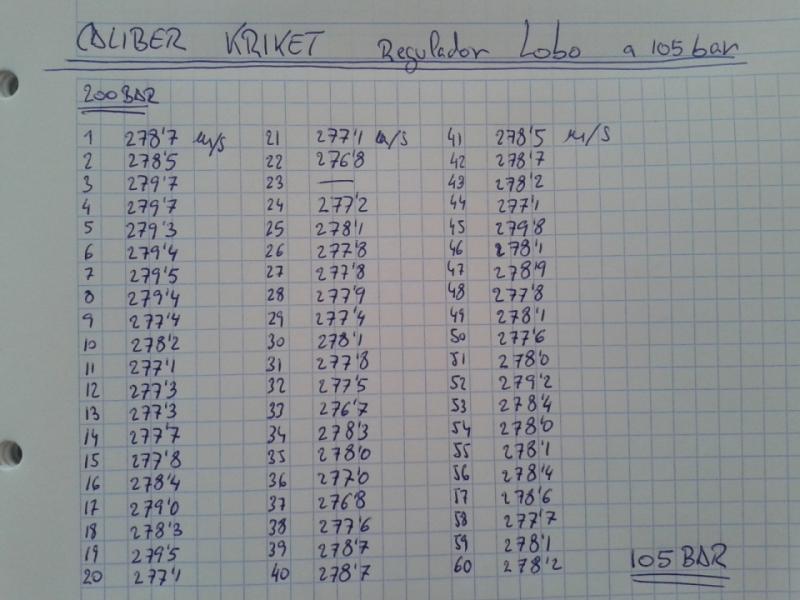 CALIBER KRIKET Regulador Lobo a 105 bar
200 BAR
1 278'7 m/s 21 277'1 m/s 41 278'5 m/s
2 278'5 22 276'8 42 278'7
3 279'7 23 — 43 278'2
4 279'7 24 277'2 44 277'1
5 279'3 25 278'1 45 279'8
6 279'4 26 277'8 46 278'1
7 279'5 27 277'8 47 278'9
8 279'4 28 277'9 48 277'8
9 277'4 29 277'4 49 278'1
10 278'2 30 278'1 50 277'6
11 277'1 31 277'8 51 278'0
12 277'3 32 277'5 52 279'2
13 277'3 33 276'7 53 278'4
14 277'7 34 278'3 54 278'0
15 277'8 35 278'0 55 278'1
16 278'4 36 277'0 56 278'4
17 279'0 37 276'8 57 278'6
18 278'3 38 277'6 58 277'7
19 279'5 39 278'7 59 278'1
20 277'1 40 278'7 60 278'2
105 BAR